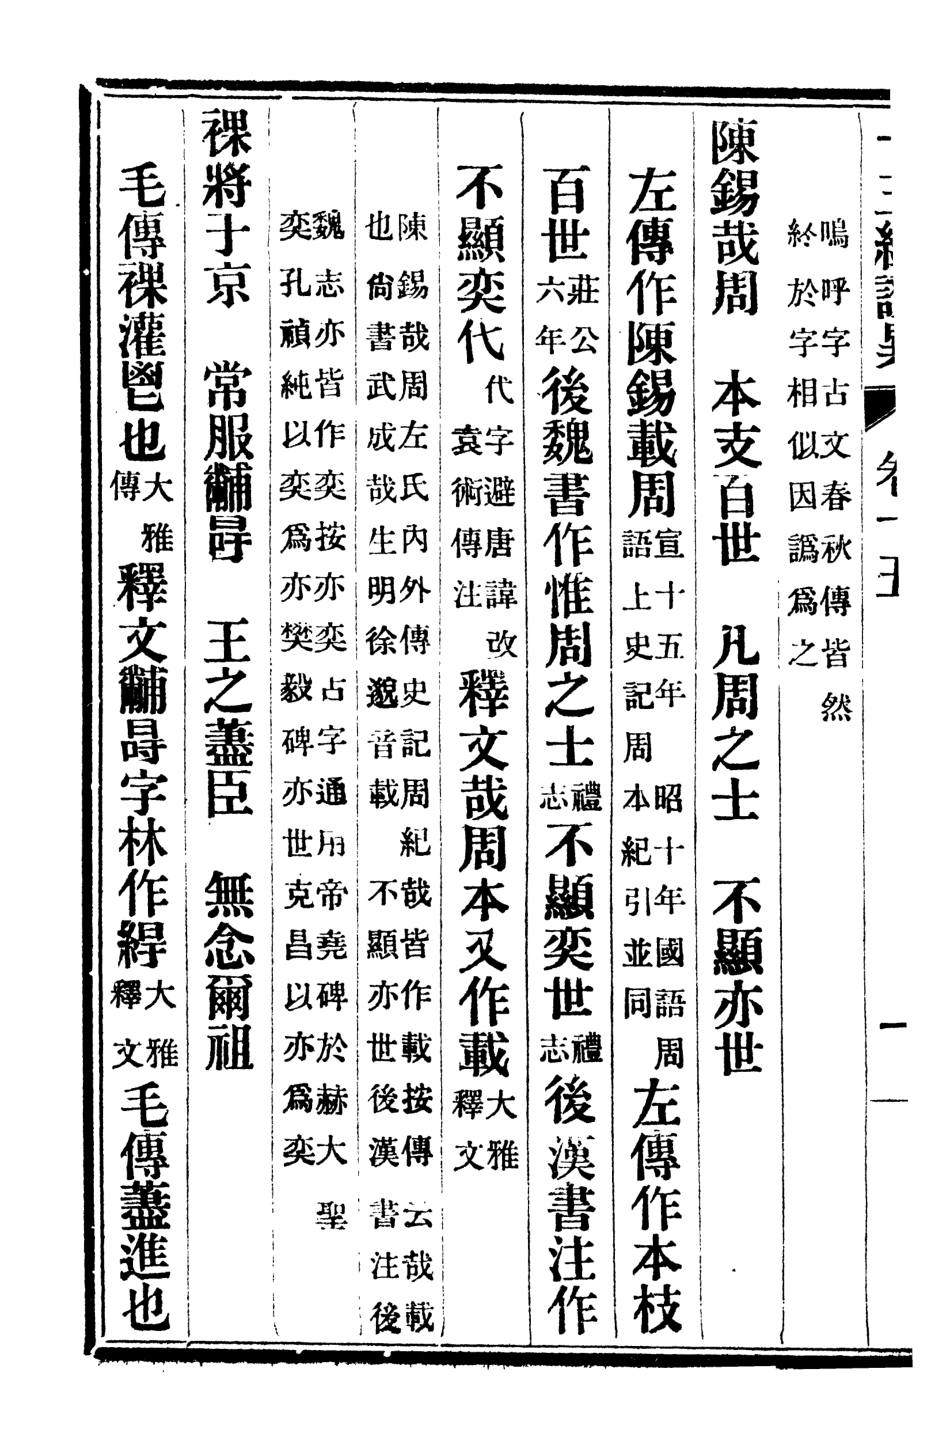 嗚呼字古文春秋傳皆然
於字相似因譌爲之
陳錫哉周　本支百世　凡周之士　不顯亦世
左傳作陳錫載周宣十五年昭十年國語周語上史記周本紀引並同左傳作本枝
百世莊公六年後魏書作惟周之士禮志不顯奕世禮志後漢書注作
不顯奕代代字避唐諱改袁術傳注釋文哉周本又作載大雅釋文
陳錫哉周左氏內外傳史記周紀哉皆作載按傳云哉載
也尙書武成哉生明徐邈音載不顯亦世後漢書注後
魏志亦皆作奕按亦奕占字通用帝堯碑於赫大聖
奕孔禎純以奕爲亦樊毅碑亦世克昌以亦爲奕
祼將于京　常服黼冔　王之藎臣　無念爾祖
毛傳祼灌鬯也大雅傳釋文黼冔字林作大雅釋文毛傳藎進也